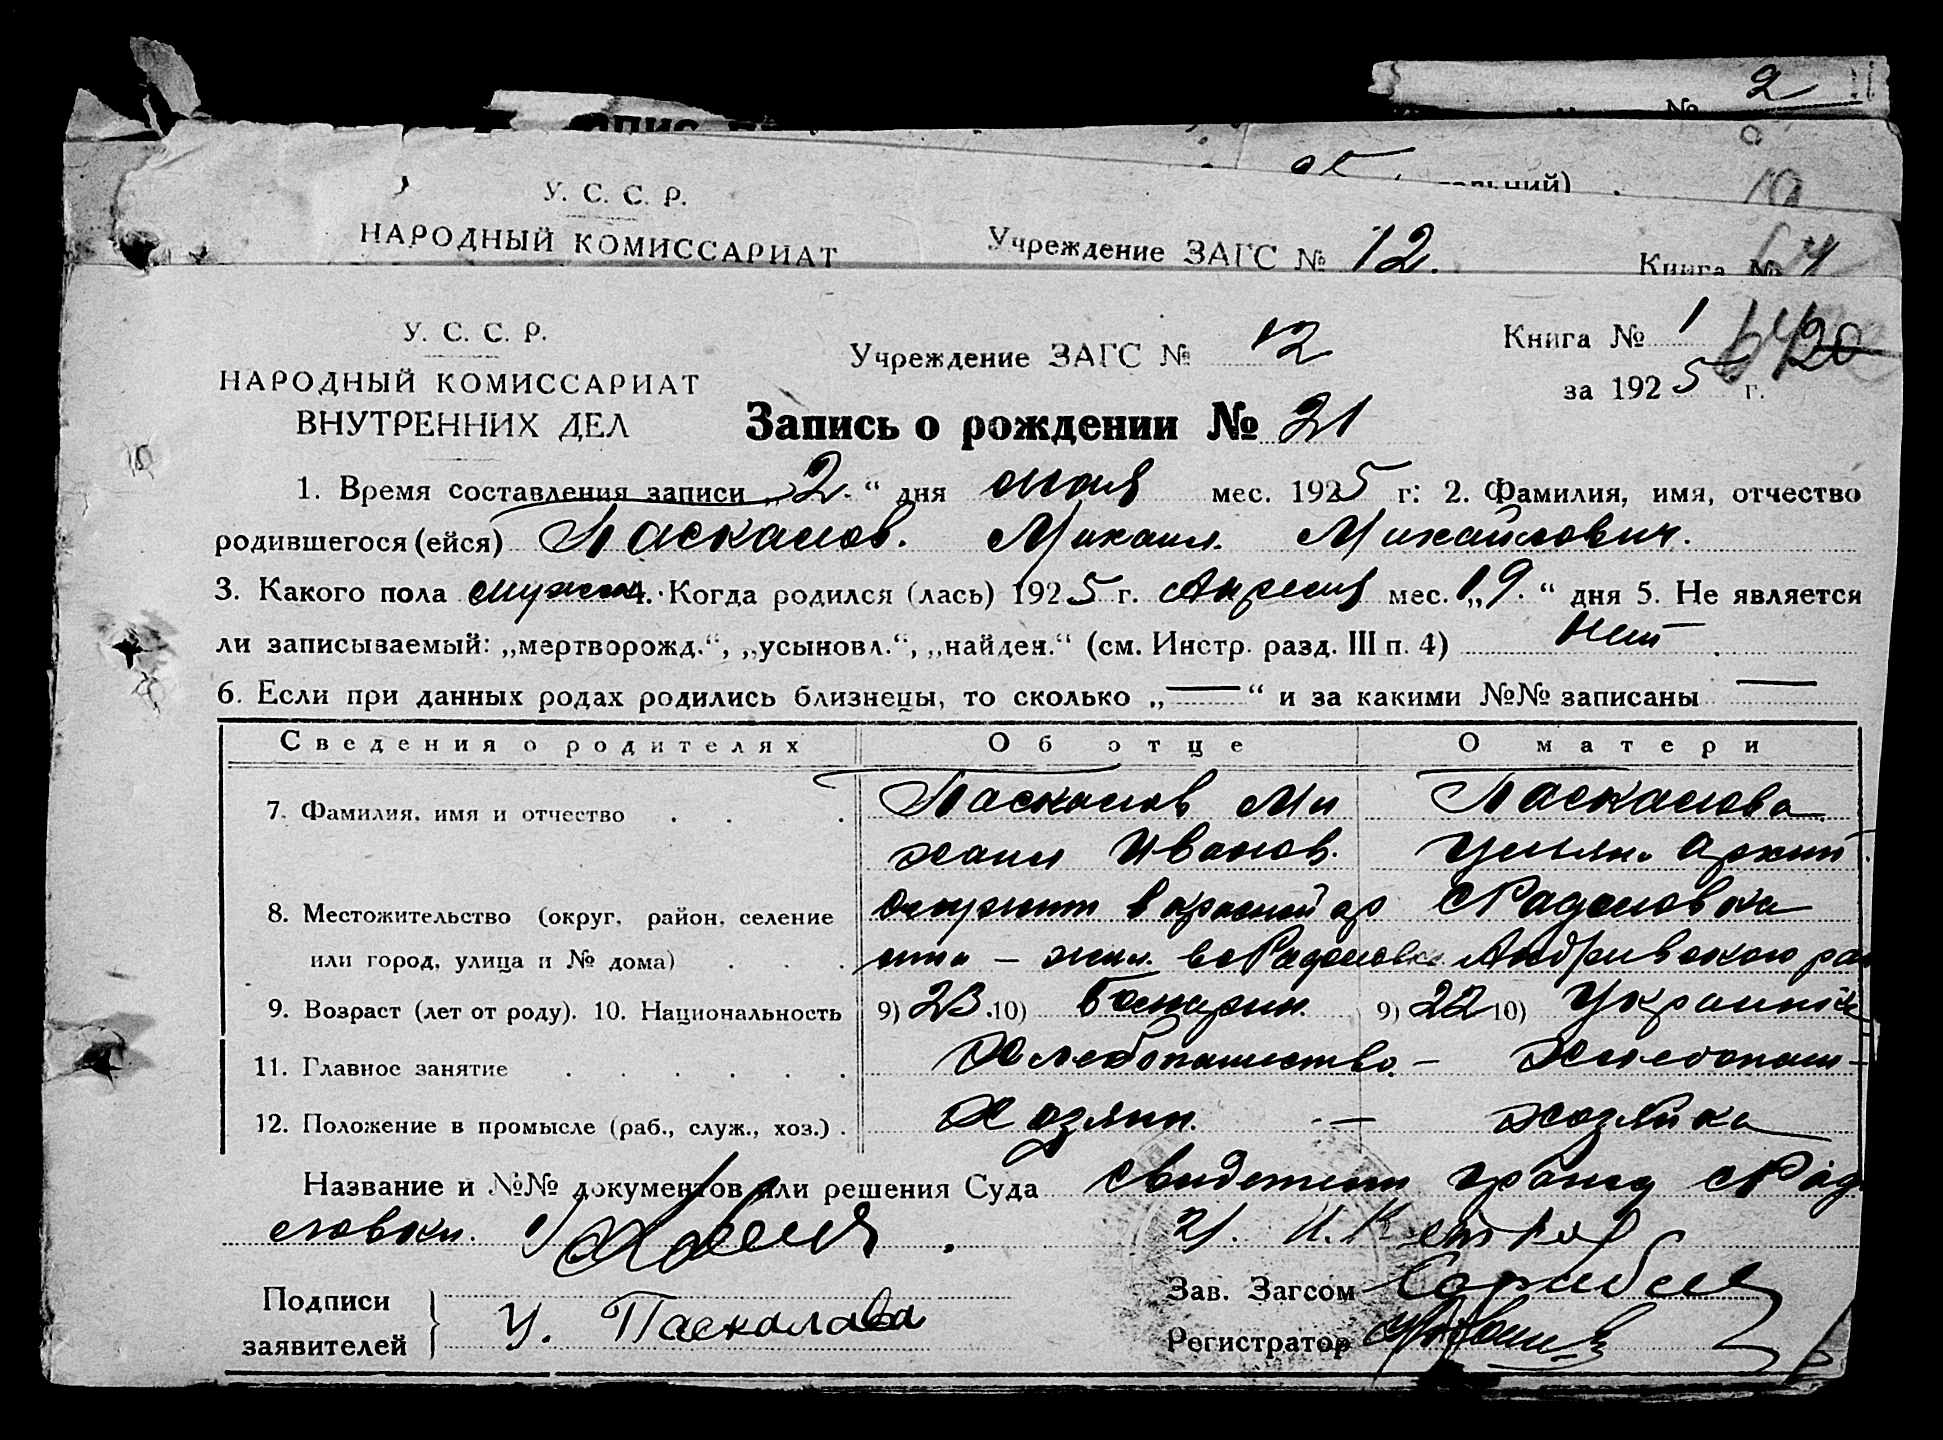 № 2
У. С. С. Р.
НАРОДНЫЙ КОМИССАРИАТ
Учреждение ЗАГС № 12.
Книга №
У. С. С. Р.
НАРОДНЫЙ КОМИССАРИАТ
ВНУТРЕННИХ ДЕЛ
Учреждение ЗАГС № 12
Книга № 1
за 1925 г.
20
Запись о рождении № 21
1. Время составления записи „2.“ дня мая мес. 1925 г: 2. Фамилия, имя, отчество
родившегося (ейся) Паскалов. Михаил. Михайлович.
3. Какого пола мужск 4. Когда родился (лась) 1925 г. Апреля мес. „19.“ дня 5. Не является
ли записываемый: „мертворожд.“, „усыновл.“, „найден.“ (см. Инстр. разд. III п. 4) Нет
6. Если при данных родах родились близнецы, то сколько „—“ и за какими №№ записаны —
Сведения о родителях Об отце О матери
7. Фамилия, имя и отчество Паскалов Ми Паскалова
хаил Иванов. Ульян.
8. Местожительство (округ, район, селение в красной ар с Радоловка
или город, улица и № дома) мии – жил. в с Радоловке Андривского рай
9. Возраст (лет от роду). 10. Национальность 9) 23. 10) Болгарин. 9) 22 10) Украин
11. Главное занятие Хлебопашество – Хлебопаш –
12. Положение в промысле (раб., служ., хоз.) Хозяин. – хозяйка
Название и №№ документов или решения Суда с Радо
ловки. 21.
Подписи
заявителей
У. Паскалова
Зав. Загсом
Регистратор